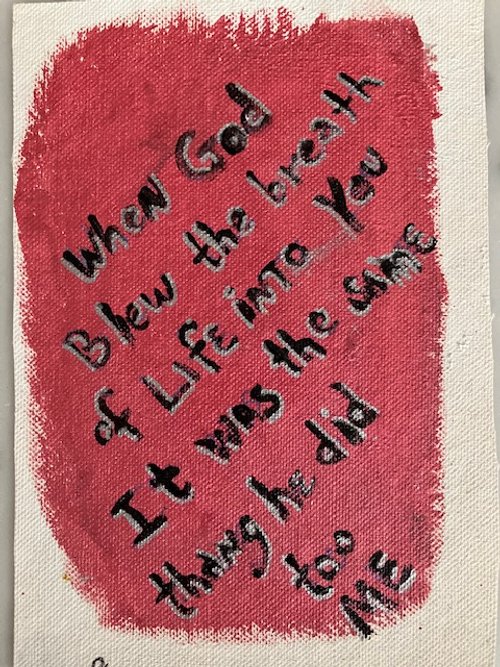 WheN God
Blew the breath
of Life iNTo You
It was the SAME
thang he did
too ME